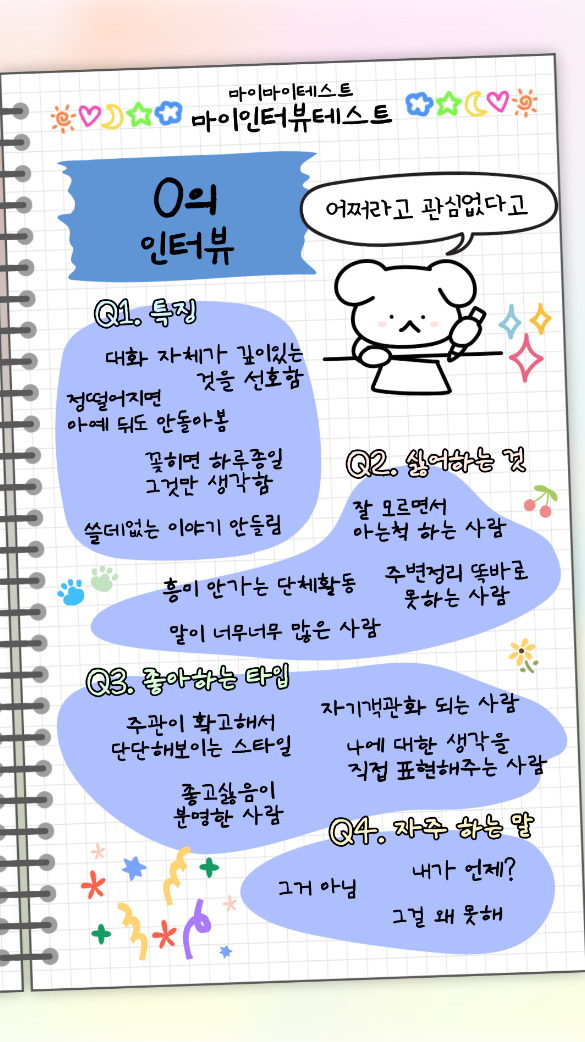 마이마이테스트
마이인터뷰테스트
O의
인터뷰
어쩌라고 관심없다고
Q1. 특징
대화 자체가 깊이있는
것을 선호함
정떨어지면
아예 뒤도 안돌아봄
꽂히면 하루종일
그것만 생각함
쓸데없는 이야기 안들림
Q2. 싫어하는 것
잘 모르면서
아는척 하는 사람
흥미 안가는 단체활동
주변정리 똑바로
못하는 사람
말이 너무너무 많은 사람
Q3. 좋아하는 타입
주관이 확고해서
단단해보이는 스타일
자기객관화 되는 사람
나에 대한 생각을
직접 표현해주는 사람
좋고싫음이
분명한 사람
Q4. 자주 하는 말
그거 아님
내가 언제?
그걸 왜 못해